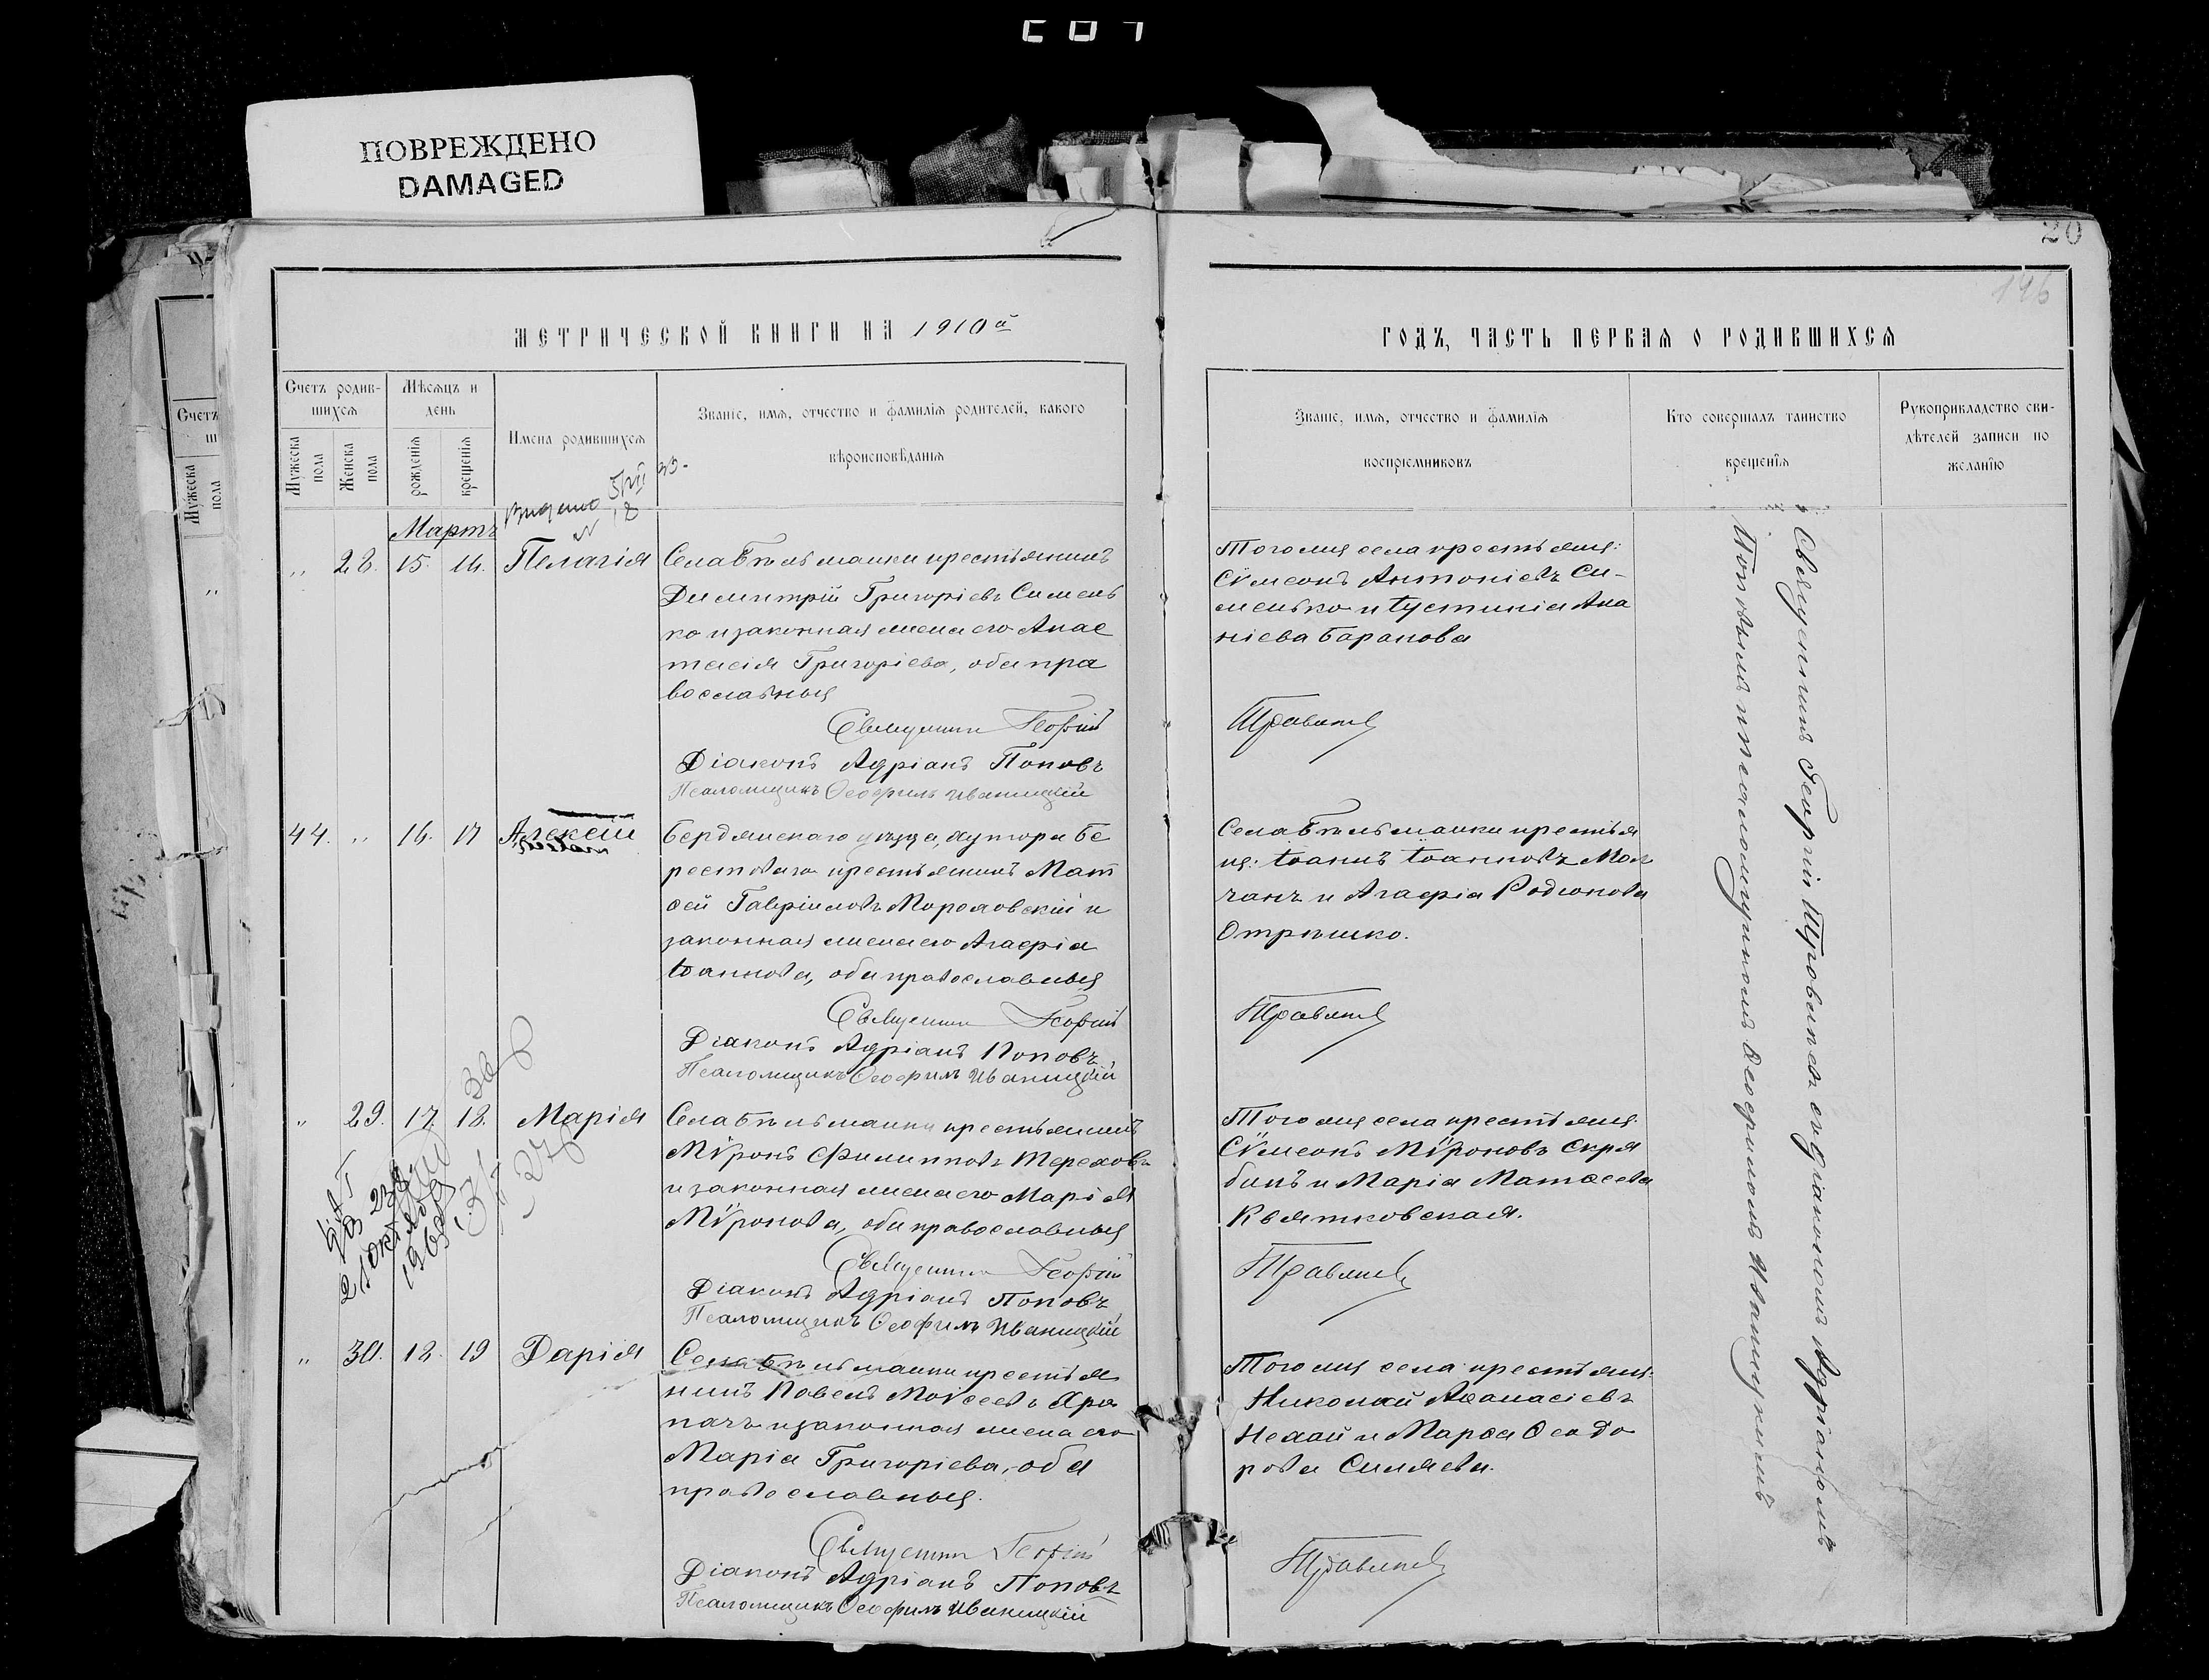 ПОВРЕЖДЕНО
DAMAGED
20
146
МЕТРИЧЕСКОЙ КНИГИ НА 1910й
ГОДЪ, ЧАСТЬ ПЕРВАЯ О РОДИВШИХСЯ
Счетъ родив-
шихся
Мужеска пола
Женска пола
Мѣсяцъ и
день
рожденія
крещенія
Имена родившихся
Званіе, имя, отчество и фамилія родителей, какого
вѣроисповѣданія
Званіе, имя, отчество и фамилія
воспріемниковъ
Кто совершалъ таинство
крещенія
Рукоприкладство сви-
дѣтелей записи по
желанію
Мартъ
„ 28. 15. 16. Пелагія
Села Бѣльманки крестьянинъ
Димитрій Григоріевъ Симень
ко и законная жена его Анас
тасія Григоріева, оба пра
вославныя
Священникъ Георгій
Діаконъ Адріанъ Поповъ
Псаломщикъ Ѳеофилъ Иваницкій
Того же села крестьяне:
Сѵмеонъ Антоніевъ Си-
менько и Іустинія Ана
ніева Баранова
44. „ 16. 17 Алексій
Бердянскаго уѣзда, хутора Бе
рестоваго крестьянинъ Мат
ѳей Гавріиловъ Мороховскій и
законная жена его Агафія
Іоаннова, оба православныя
Священникъ Георгій
Діаконъ Адріанъ Поповъ
Псаломщикъ Ѳеофилъ Иваницкій
Села Бѣльманки крестья
не: Іоаннъ Іоанновъ Мол
чанъ и Агафія Родіонова
Отрѣшко.
„ 29. 17. 18. Марія
Села Бѣльманки крестьянинъ
Мѵронъ Филипповъ Тереховъ
и законная жена его Марія
Мѵронова, оба православныя
Священникъ Георгій
Діаконъ Адріанъ Поповъ
Псаломщикъ Ѳеофилъ Иваницкій
Того же села крестьяне:
Сѵмеонъ Мѵроновъ Скря
бинъ и Марія Матѳеева
Квятковская.
21 октября
1965
„ 30. 18. 19 Дарія
Села Бѣльманки крестья
нинъ Павелъ Моѵсеевъ Хра
пачъ и законная жена его
Марія Григоріева, оба
православныя.
Священникъ Георгій
Діаконъ Адріанъ Поповъ
Псаломщикъ Ѳеофилъ Иваницкій
Того же села крестьяне:
Николай Аѳанасіевъ
Нехай и Марѳа Ѳеодо
рова Силяева.
Священникъ Георгій съ діакономъ Адріаномъ
Поповымъ и псаломщикомъ Ѳеофиломъ Иваницкимъ